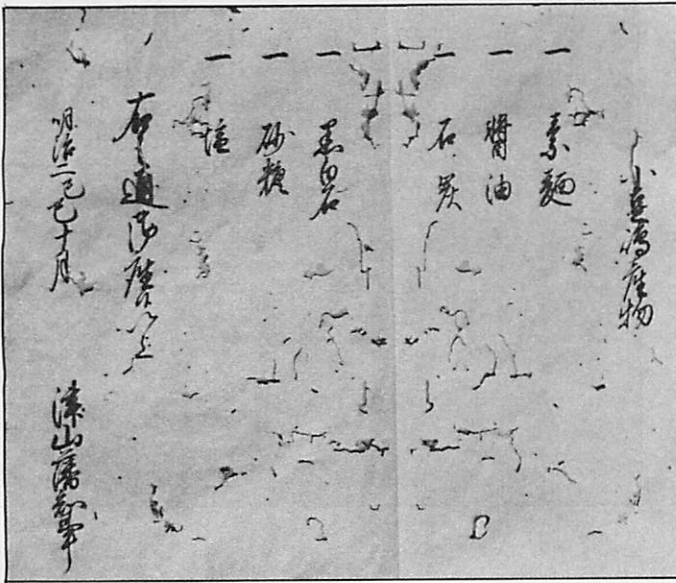 小豆嶋産物
一 素麺
一 醤油
一 石炭
一 黒白石
一 砂糖
一 塩
右之通御座候以上
明治二己巳十月
津山藩知事